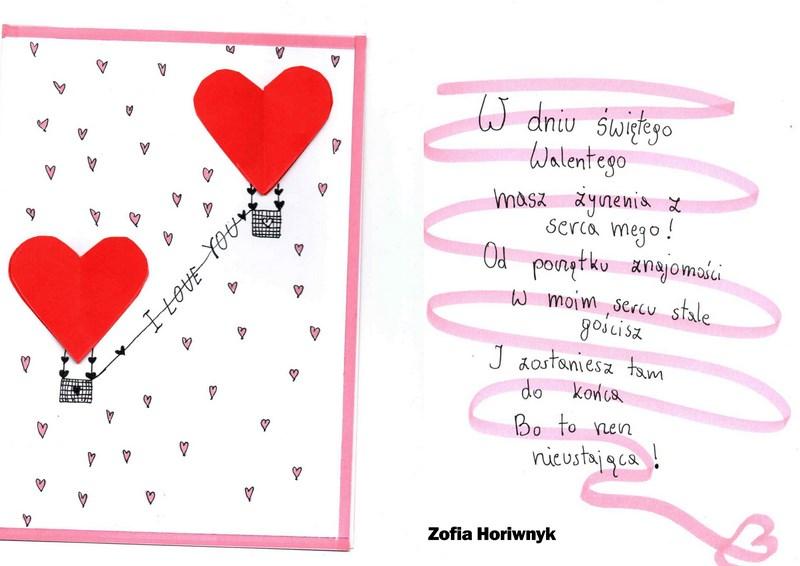 I LOVE YOU
W dniu świętego
Walentego
masz życzenia z
serca mego!
Od początku znajomości
w moim sercu stale
gościsz
I zostaniesz tam
do końca
Bo to rzecz
nieustająca!
Zofia Horiwnyk